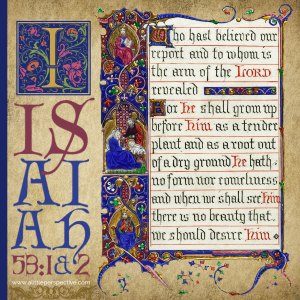 I
IS
AI
AH
53:1&2
www.alittleperspective.com
Who hast believed our
report and to whom is
the arm of the LORD
revealed
For He shall grow up
before Him as a tender
plant and as a root out
of a dry ground He hath
no form nor comeliness
and when we shall see Him
there is no beauty that
we should desire Him